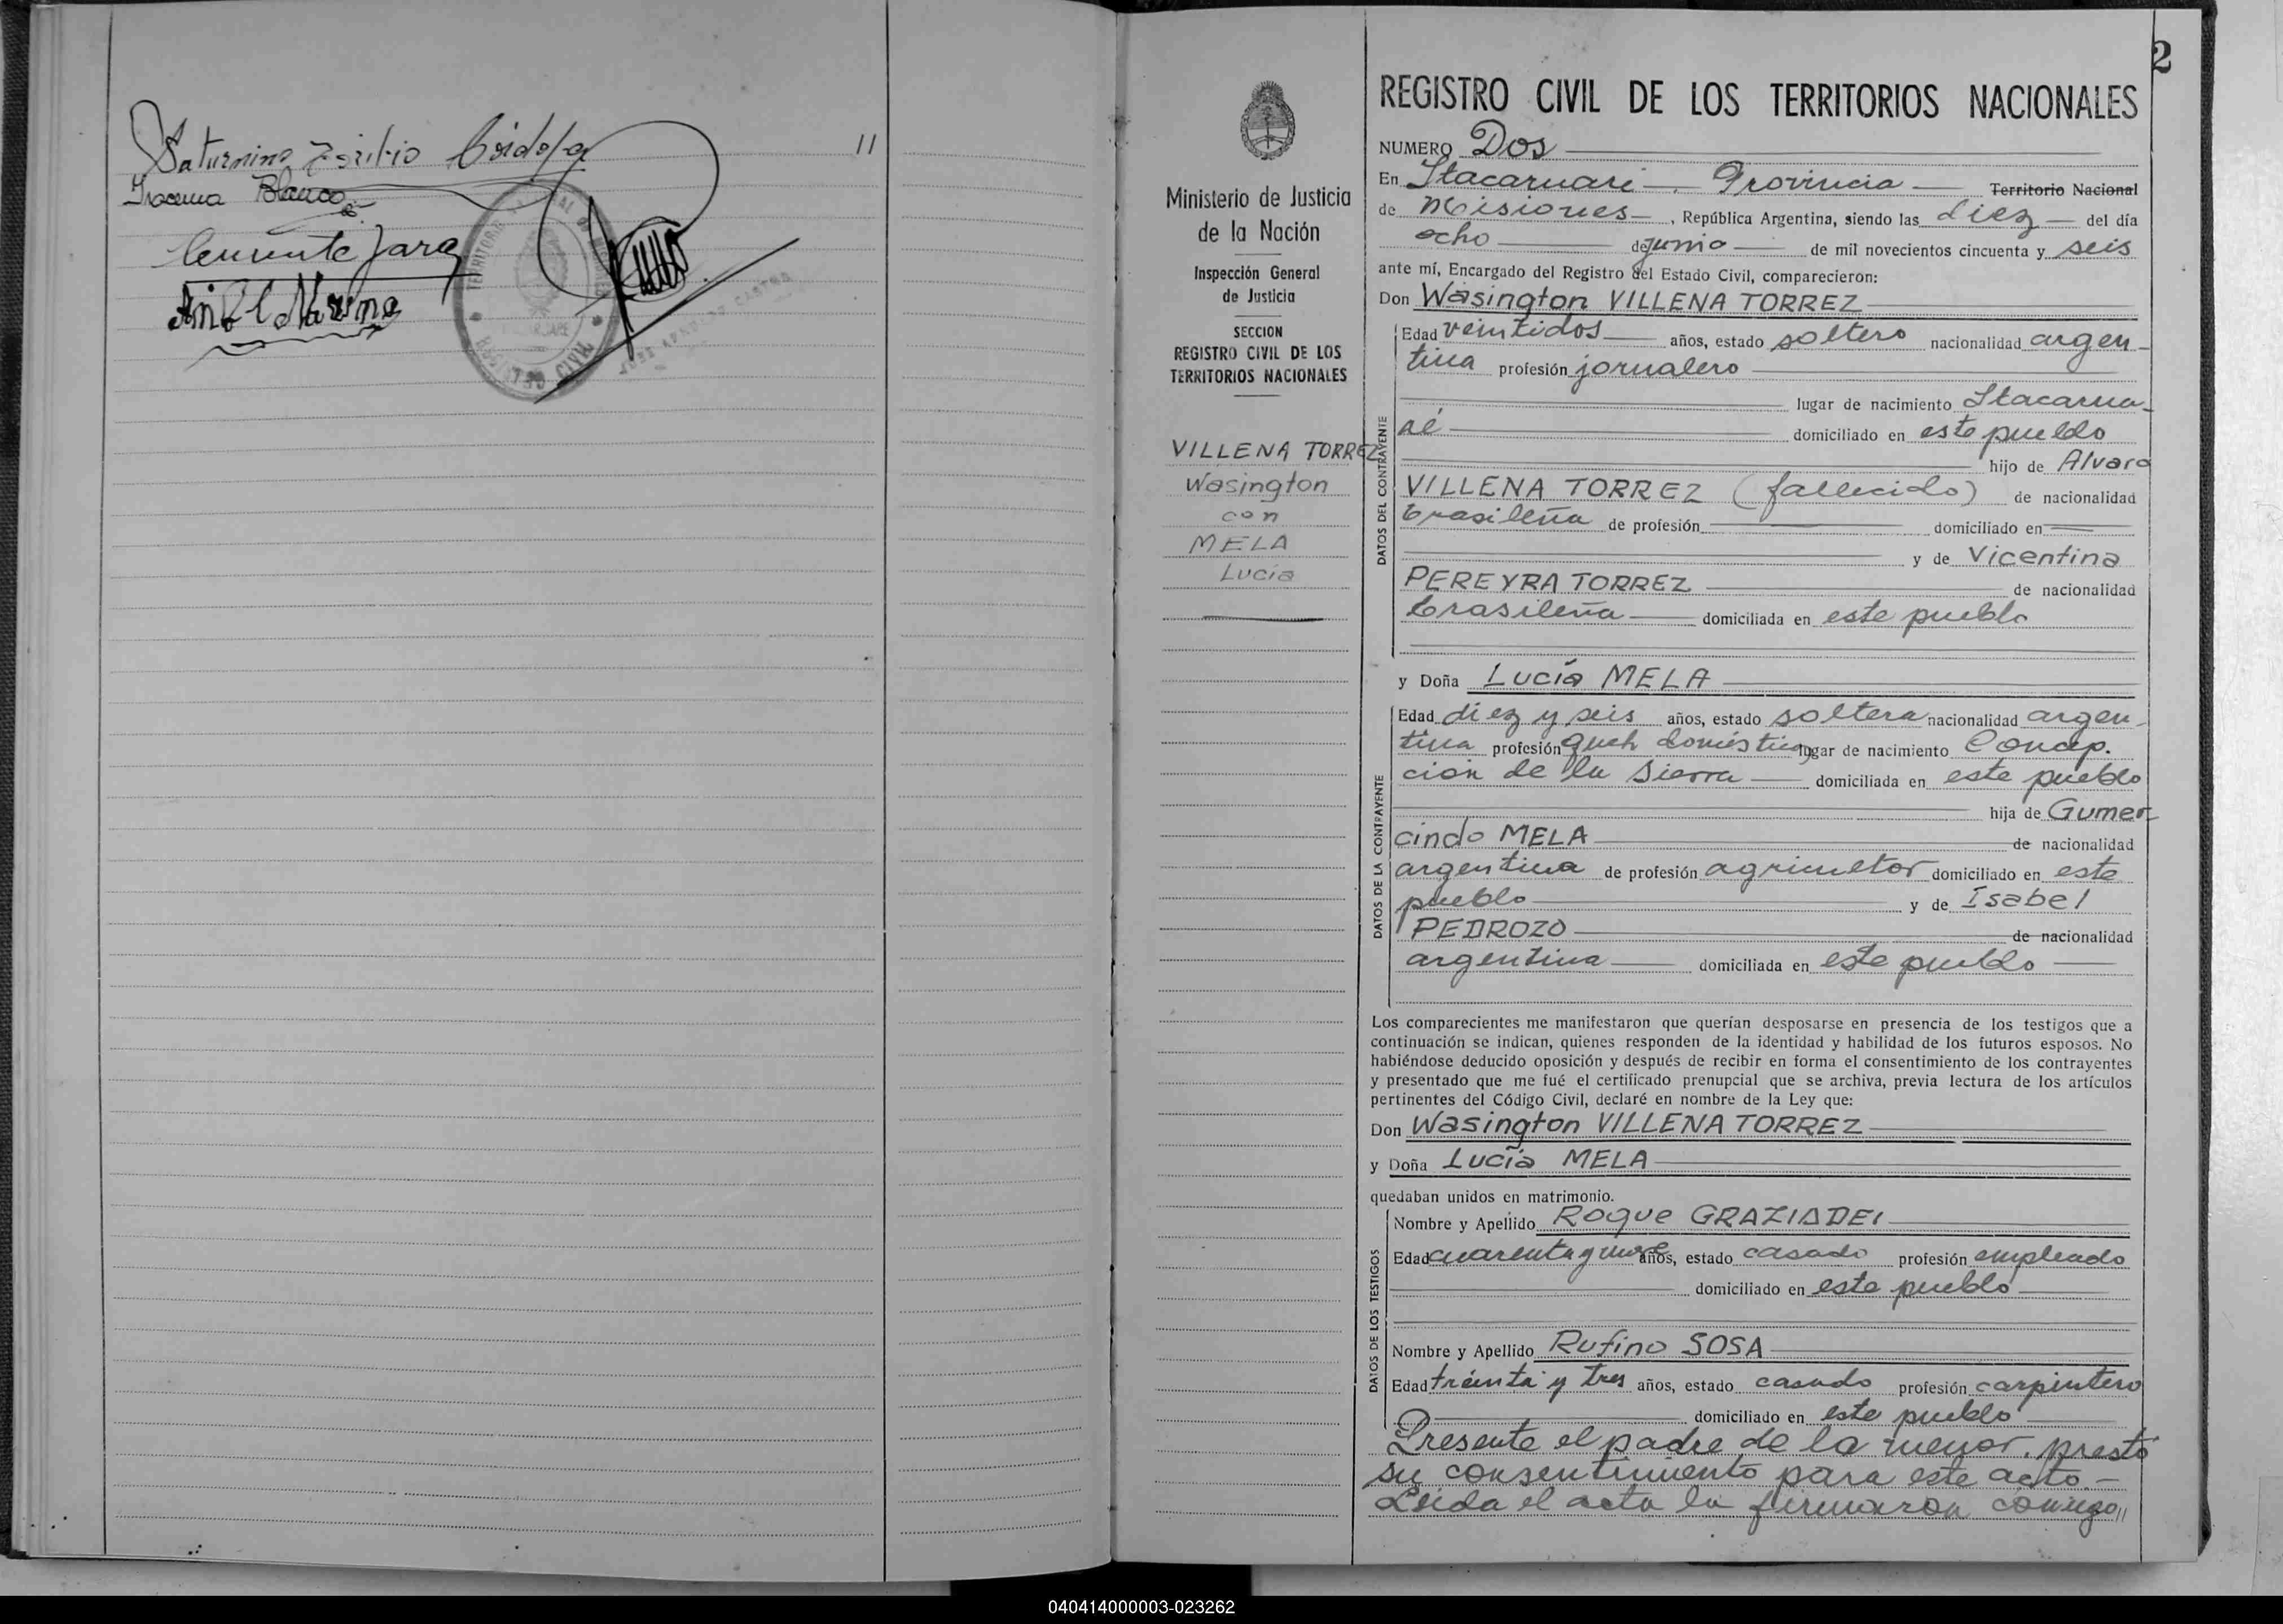 Saturnino Toribio Córdoba
11
Iracema Blanco
Clemente Jara
REGISTRO CIVIL
2
Ministerio de Justicia
de la Nación
Inspección General
de Justicia
SECCION
REGISTRO CIVIL DE LOS
TERRITORIOS NACIONALES
VILLENA TORREZ
Wásington
con
MELA
Lucía
REGISTRO CIVIL DE LOS TERRITORIOS NACIONALES
NUMERO Dos
En Itacaruaré Provincia Territorio Nacional
de Misiones, República Argentina, siendo las diez del día
ocho de junio de mil novecientos cincuenta y seis
ante mí, Encargado del Registro del Estado Civil, comparecieron:
Don Wásington VILLENA TORREZ
DATOS DEL CONTRAYENTE
Edad veintidos años, estado soltero nacionalidad argen-
tina profesión jornalero
lugar de nacimiento Itacarua-
ré domiciliado en este pueblo
hijo de Alvaro
VILLENA TORREZ (fallecido) de nacionalidad
brasileña de profesión domiciliado en
y de Vicentina
PEREYRA TORREZ de nacionalidad
brasileña domiciliada en este pueblo
y Doña Lucía MELA
DATOS DE LA CONTRAYENTE
Edad diez y seis años, estado soltera nacionalidad argen-
tina profesión queh. domésticos lugar de nacimiento Concep.
ción de la Sierra domiciliada en este pueblo
hija de Gumer
cindo MELA de nacionalidad
argentina de profesión agricultor domiciliado en este
pueblo y de Isabel
PEDROZO de nacionalidad
argentina domiciliada en este pueblo
Los comparecientes me manifestaron que querían desposarse en presencia de los testigos que a
continuación se indican, quienes responden de la identidad y habilidad de los futuros esposos. No
habiéndose deducido oposición y después de recibir en forma el consentimiento de los contrayentes
y presentado que me fué el certificado prenupcial que se archiva, previa lectura de los artículos
pertinentes del Código Civil, declaré en nombre de la Ley que:
Don Wasington VILLENA TORREZ
y Doña Lucía MELA
quedaban unidos en matrimonio.
DATOS DE LOS TESTIGOS
Nombre y Apellido Roque GRAZIADEI
Edad cuarenta y nueve años, estado casado profesión empleado
domiciliado en este pueblo
Nombre y Apellido Rufino SOSA
Edad treinta y tres años, estado casado profesión carpintero
domiciliado en este pueblo
Presente el padre de la menor, prestó
su consentimiento para este acto.-
Leída el acta la firmaron conmigo,,
040414000003-023262